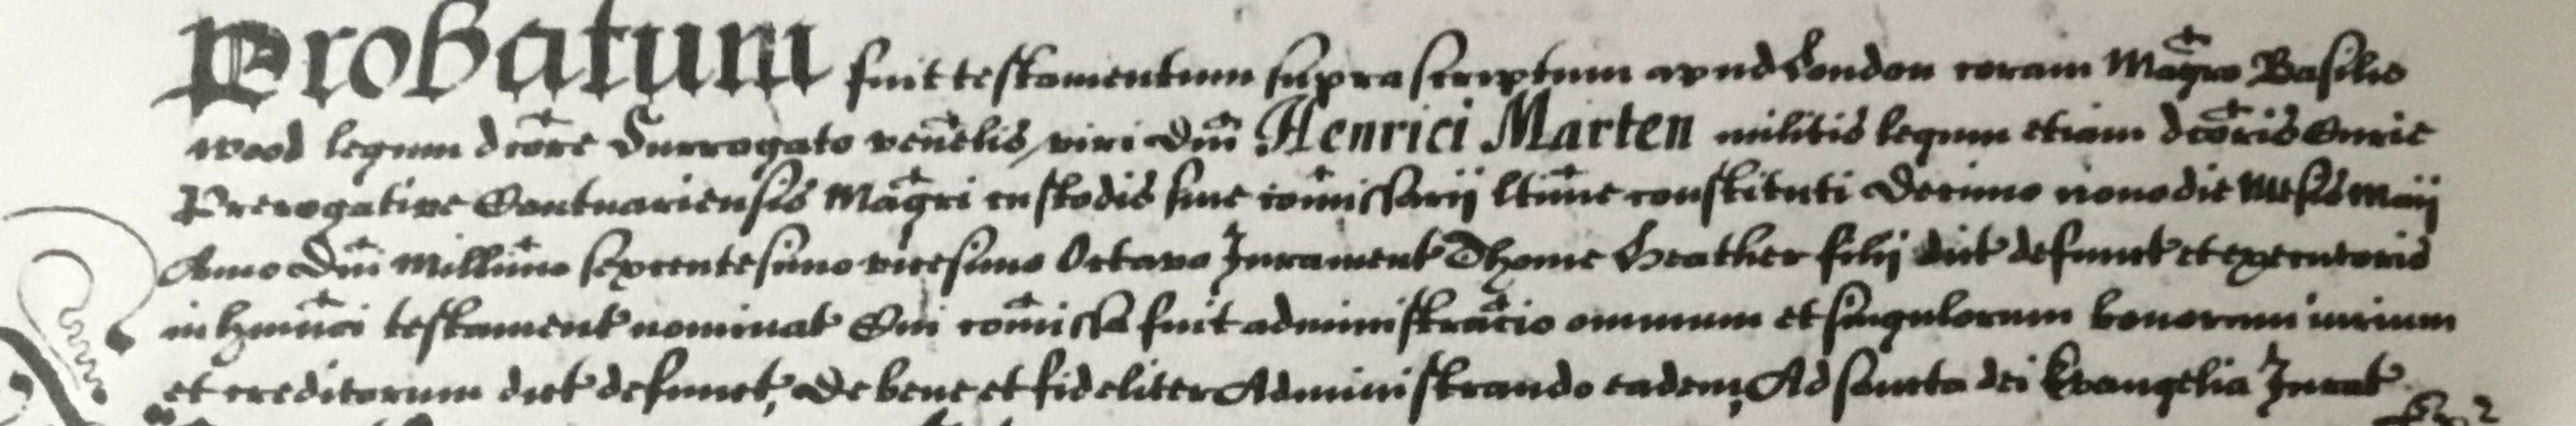 Probatum fuit testamentum suprascriptum apud London coram Magro Basilio
Wood legum dcore Surrogato venelis viri Dni Henrici Marten militis legum etiam dcoris Curie
Prerogative Cantuariensis Magri custodis sive comissarii ltime constituti Decimo nono die Mesis Maii
Anno Dni Millimo sexcentesimo vicesimo Octavo Jurament Thome Heather filij dict defunct et executoris
in hmoi testament nominat Cui comissa fuit administracio omnium et singulorum bonorum iurium
et creditorum dict defunct, De bene et fideliter Administrando eadem, Ad sancta dei Evangelia Jurat